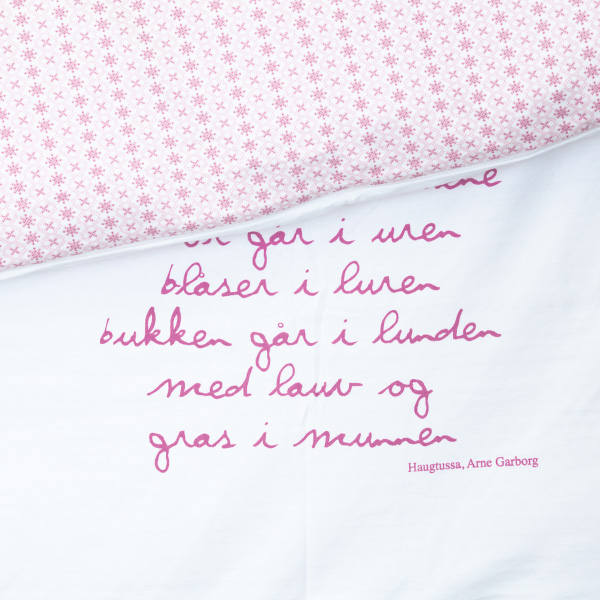 går i uren
blåser i luren
bukken går i lunden
med lauv og
gras i munnen
Haugtussa, Arne Garborg